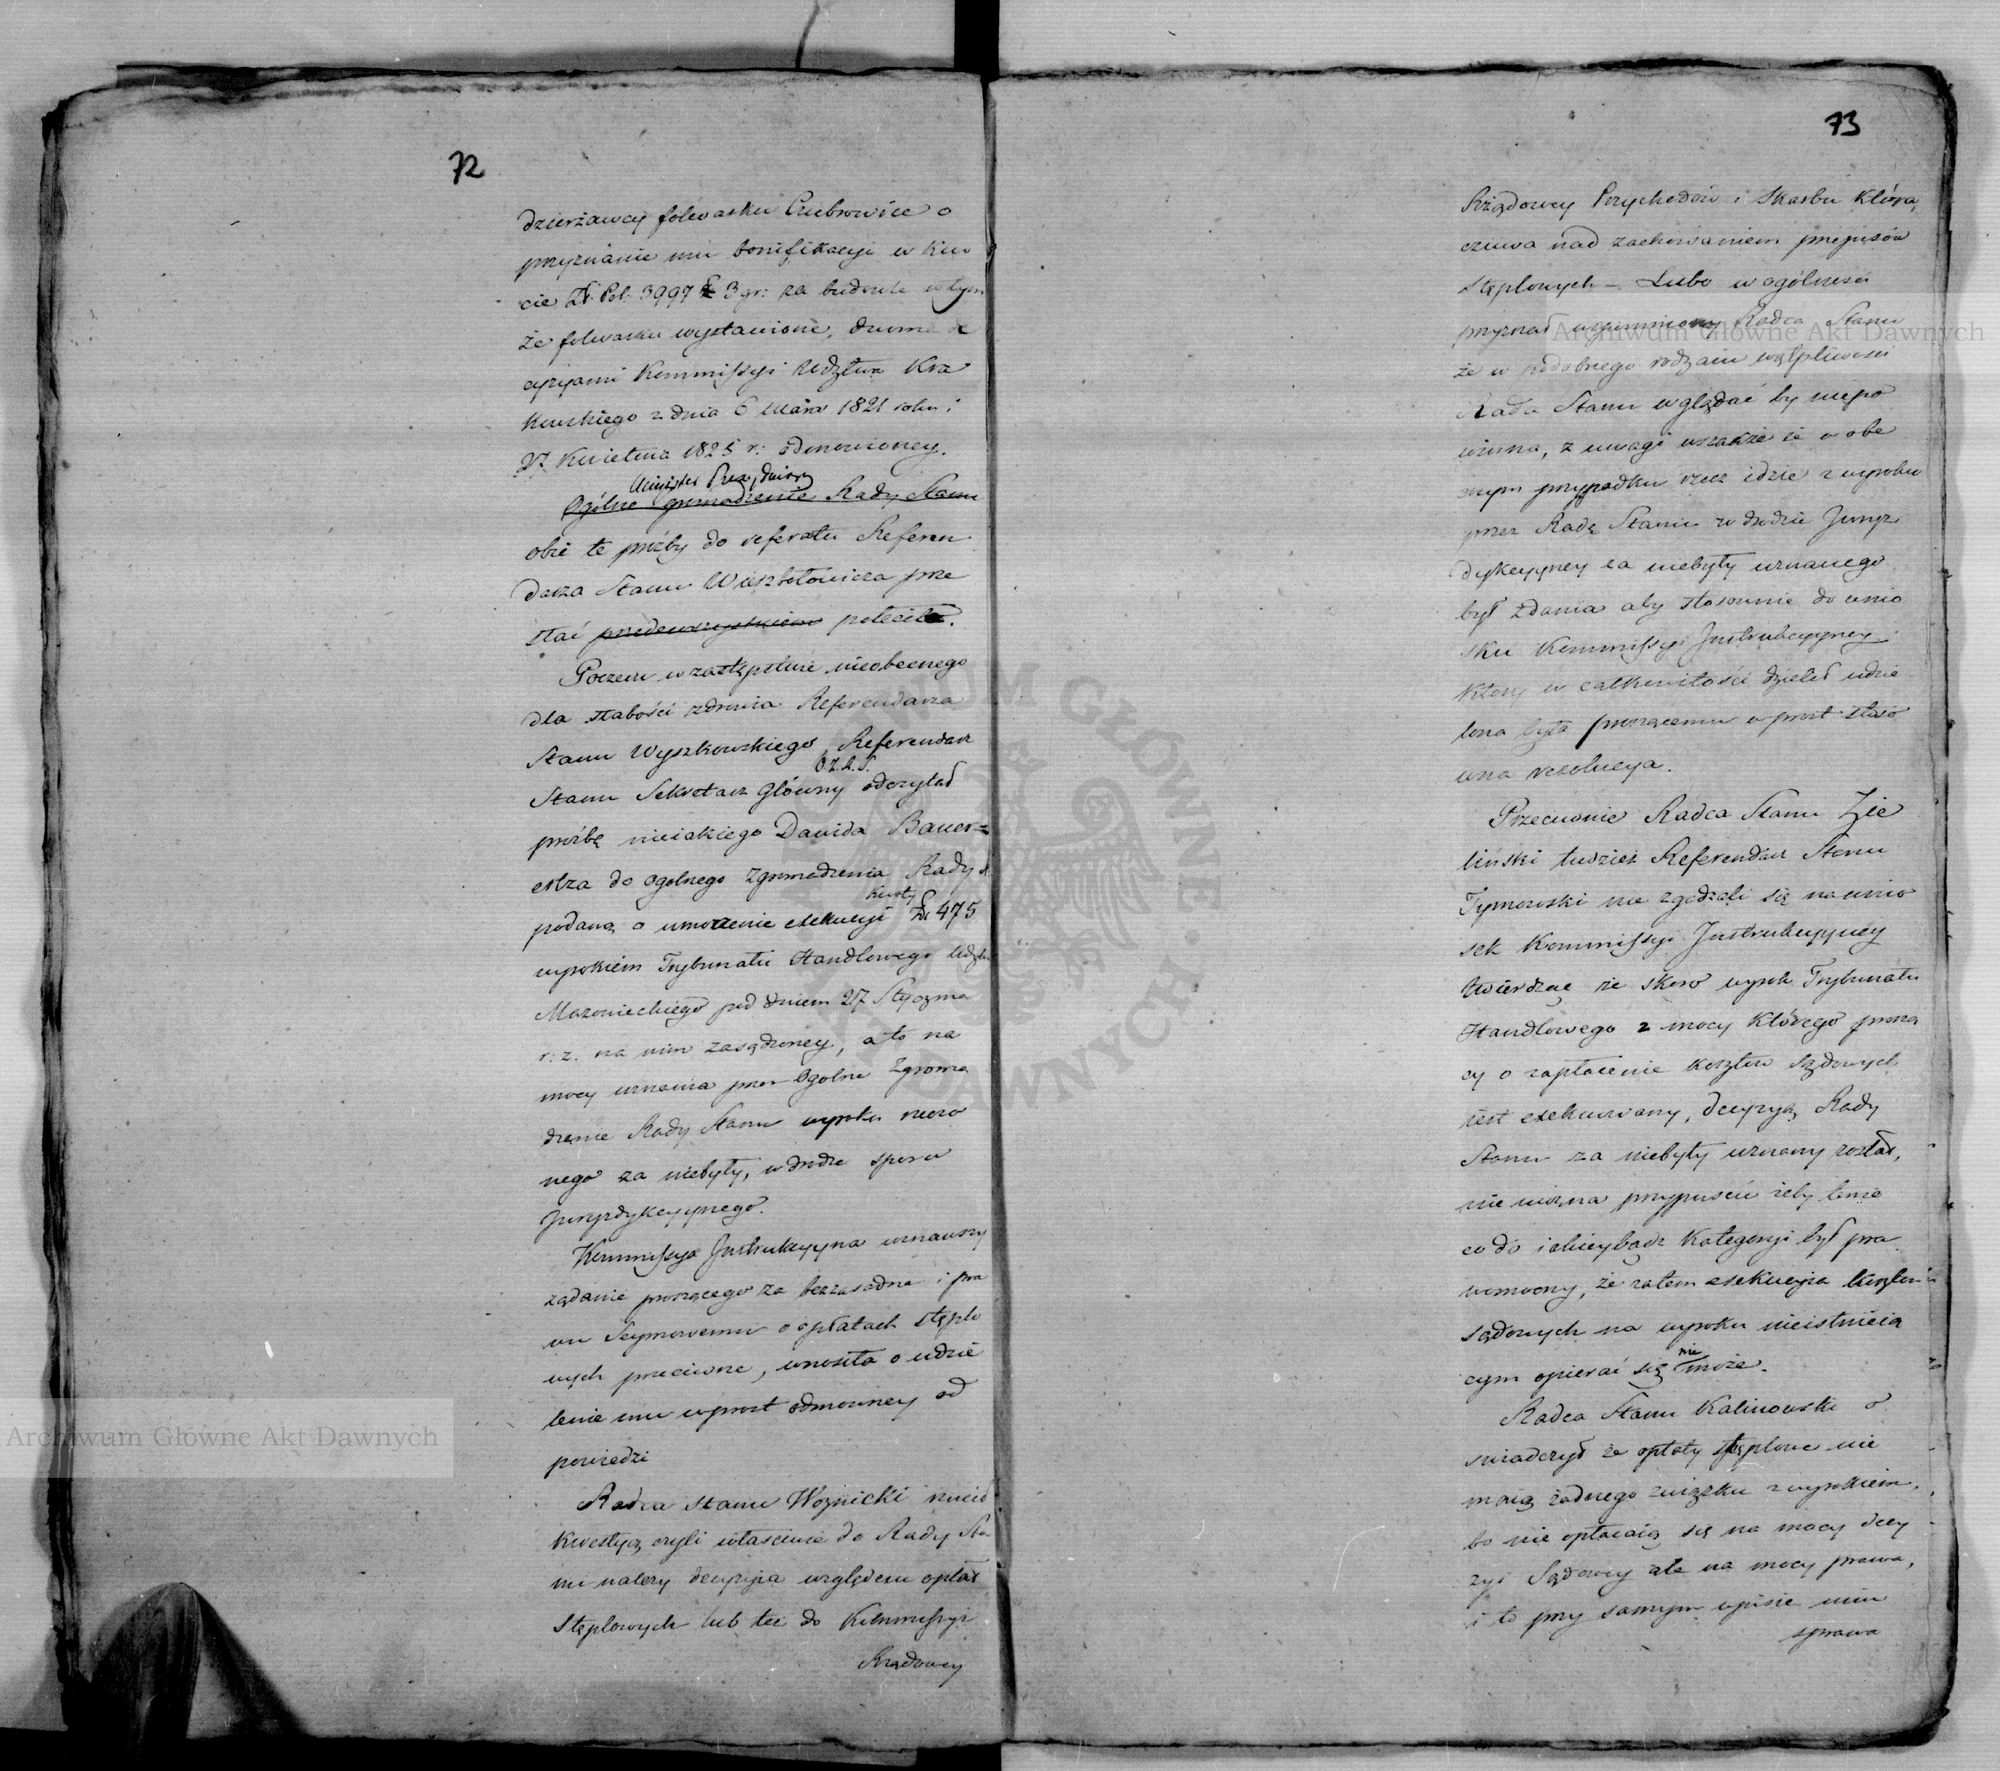 72
dzierżawcy folwarku Czubrowice o
przyznanie mu bonifikacyi w kwo
cie Zł. Pol. 3997 3 gr: za budowle w tym
że folwarku wystawione, dwoma de
cyzyami Kommissyi Wdztwa Kra
kowskiego z dnia 6 Marca 1821 roku i
27 Kwietnia 1825 r: odmówioney.
Minister Prezyduiący
Ogólne zgromadzenie Rady Stanu
obie te proźby do referatu Referen
darza Stanu Wieszbołowicza prze
słać przedewszystkiem poleciła.
Poczem w zastępstwie nieobecnego
dla słabości zdrowia Referendarza
Stanu Wyszkowskiego, Referendarz
O.Z.R.S.
Stanu Sekretarz Główny odczytał
proźbę nieiakiego Dawida Bauer=
ertza do ogolnego zgromadzenia Rady S.
koszty
podaną o umorzenie exekucyi Zł 475
wyrokiem Trybunału Handlowego Wdztwa
Mazowieckiego pod dniem 27 Stycznia
r: z. na nim zasądzoney, a to na
mocy uznania przez Ogolne Zgroma
dzenie Rady Stanu wyroku rzeczo
nego za niebyły, w drodze sporu
Juryzdykcyynego.
Kommissya Instrukcyyna uznawszy
żądanie proszącego za bezzasadne i pra
wu Seymowemu o opłatach stęplo
wych przeciwne, wnosiła o udzie
lenie mu wprost odmowney od
powiedzi
Radca Stanu Woźnicki rzucił
kwestyą czyli właściwie do Rady Sta
nu należy decyzya względem opłat
stęplowych lub też do Kommissyi
Rządowey
73
Rządowey Przychodów i Skarbu która
czuwa nad zachowaniem przepisów
stęplowych – Lubo w ogólności
przyznał wspomniony Radca Stanu
że w podobnego rodzaiu wątpliwości
Rada Stanu wglądać by niepo
winna, z uwagi wszakże że w obe
cnym przypadku rzecz idzie z wyroku
przez Radę Stanu w drodze Juryz
dykcyyney za niebyły uznanego
był zdania aby stosownie do wnio
sku Kommissyi Instrukcyyney
który w całkowitości dzielił udzie
lona była proszącemu wprost stoso
wna rezolucya.
Przeciwnie Radca Stanu Zie
liński tudzież Referendarz Stanu
Tymowski nie zgadzali się na wnio
sek Kommissyi Instrukcyyney
twierdząc że skoro wyrok Trybunału
Handlowego z mocy którego proszą
cy o zapłacenie kosztów sądowych
iest exekwowany, decyzyą Rady
Stanu za niebyły uznany został,
nie można przypuścić żeby tenże
co do iakieybądź kategoryi był pra
womocny, że zatem exekucyia kosztów
sądowych na wyroku nieistnieią
nie
cym opierać się może.
Radca Stanu Kalinowski o
świadczył że opłaty stęplowe nie
maią żadnego związku z wyrokiem,
bo nie opłacaią się na mocy decy
zyi Sądowey ale na mocy prawa,
i to przy samym wpisie nim
sprawa